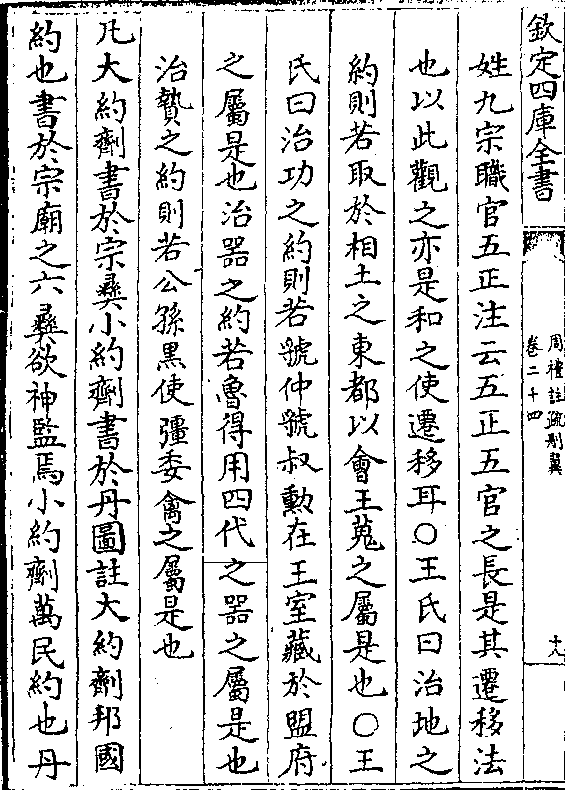 欽定四庫全書
周禮註疏刪翼
卷二十四
十八
姓九宗職官五正注云五正五官之長是其遷移法
也以此觀之亦是和之使遷移耳○王氏曰治地之
約則若取於相土之東都以會王蒐之屬是也○王
氏曰治功之約則若虢仲虢叔勲在王室藏於盟府
之屬是也治器之約若魯得用四代之器之屬是也
治贄之約則若公孫黒使彊委禽之屬是也
凡大約劑書於宗彝小約劑書於丹圖註大約劑邦國
約也書於宗廟之六彝欲神監焉小約劑萬民約也丹